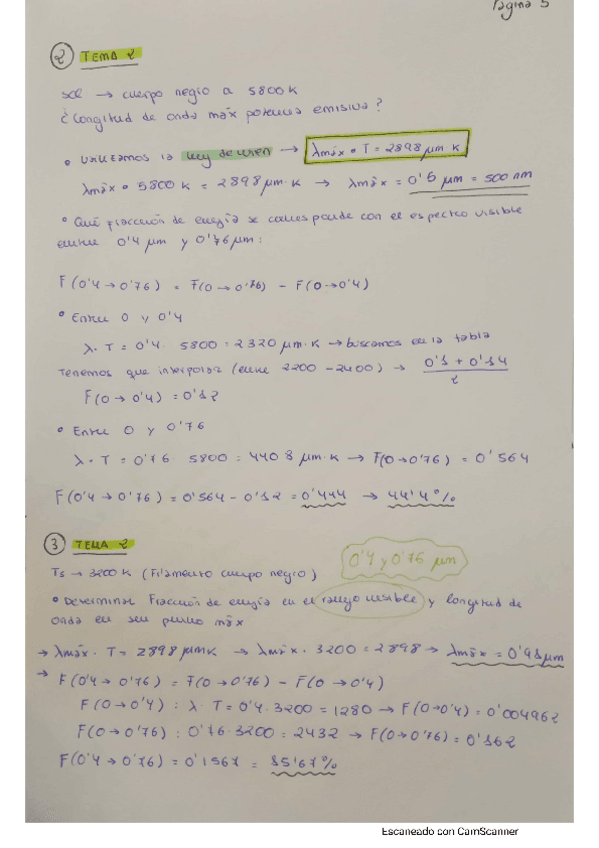 Página 5
② TEMA 2
Sol → cuerpo negro a 5800K
¿Longitud de onda máx potencia emisiva?
• Utilizamos la ley de wien → λmáx • T = 2898 μm·K
λmáx • 5800 K = 2898 μm·K → λmáx = 0'5 μm = 500 nm
• Qué fracción de energía se corresponde con el espectro visible
entre 0'4 μm y 0'76 μm:
F(0'4→0'76) = F(0→0'76) - F(0→0'4)
• Entre 0 y 0'4
λ·T = 0'4 · 5800 = 2320 μm·K → buscamos en la tabla
Tenemos que interpolar (entre 2200 - 2400) → 0'1 + 0'14 / 2
F(0→0'4) = 0'12
• Entre 0 y 0'76
λ·T = 0'76 · 5800 = 4408 μm·K → F(0→0'76) = 0'564
F(0'4→0'76) = 0'564 - 0'12 = 0'444 → 44'4%
③ TEMA 2
0'4 y 0'76 μm
Ts → 3200 K (Filamento cuerpo negro)
• Determinar Fracción de energía en el rango visible y longitud de
onda en su punto máx
→ λmáx · T = 2898 μmK → λmáx · 3200 = 2898 → λmáx = 0'91 μm
→ F(0'4→0'76) = F(0→0'76) - F(0→0'4)
F(0→0'4) : λ·T = 0'4·3200 = 1280 → F(0→0'4) = 0'004962
F(0→0'76) : 0'76·3200 = 2432 → F(0→0'76) = 0'162
F(0'4→0'76) = 0'1567 = 15'67%
Escaneado con CamScanner